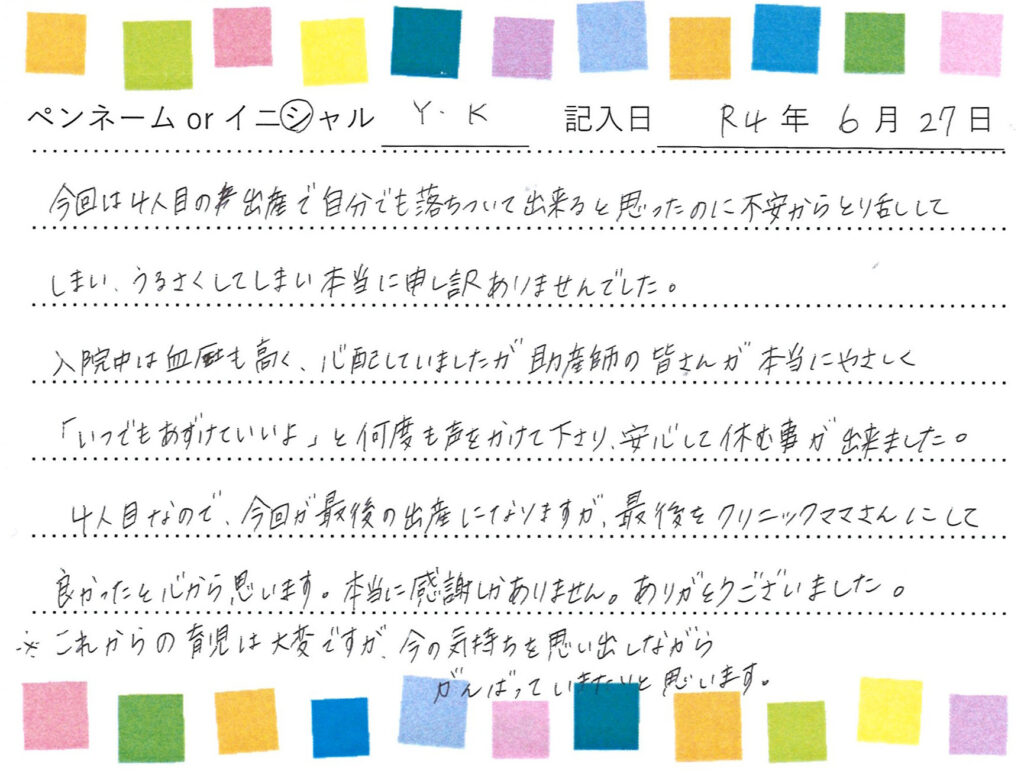 ペンネーム or イニシャル Y.K 記入日 R4年 6月27日
今回は4人目の出産で自分でも落ちついて出来ると思ったのに不安からとり乱しして
しまい、うるさくしてしまい本当に申し訳ありませんでした。
入院中は血圧も高く、心配していましたが助産師の皆さんが本当にやさしく
「いつでもあずけていいよ」と何度も声をかけて下さり、安心して休む事が出来ました。
4人目なので、今回が最後の出産になりますが、最後をクリニックママさんにして
良かったと心から思います。本当に感謝しかありません。ありがとうございました。
※これからの育児は大変ですが、今の気持ちを思い出しながら
がんばっていきたいと思います。